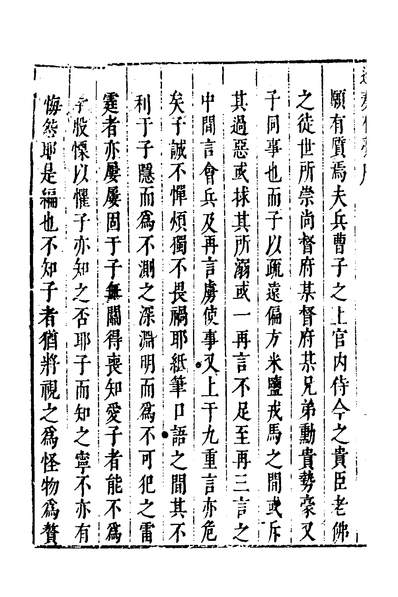 願有質焉夫兵曹子之上官内侍今之貴臣老佛
之徒世所崇尚督府某督府某兄弟勳貴勢豪又
子同事也而子以疏遠偏方米鹽戎馬之間或斥
其過惡或抹其所溺或一再言不足至再三言之
中間言會兵及再言虜使事又上干九重言亦危
矣子誠不憚煩獨不畏禍耶紙筆口語之間其不
利于子隱而為不測之深淵明而為不可犯之雷
霆者亦屢屢固于子無關得喪知愛子者能不為
子股慄以懼子亦知之否耶子而知之寧不亦有
悔怨耶是編也不知子者猶將視之為怪物為贅